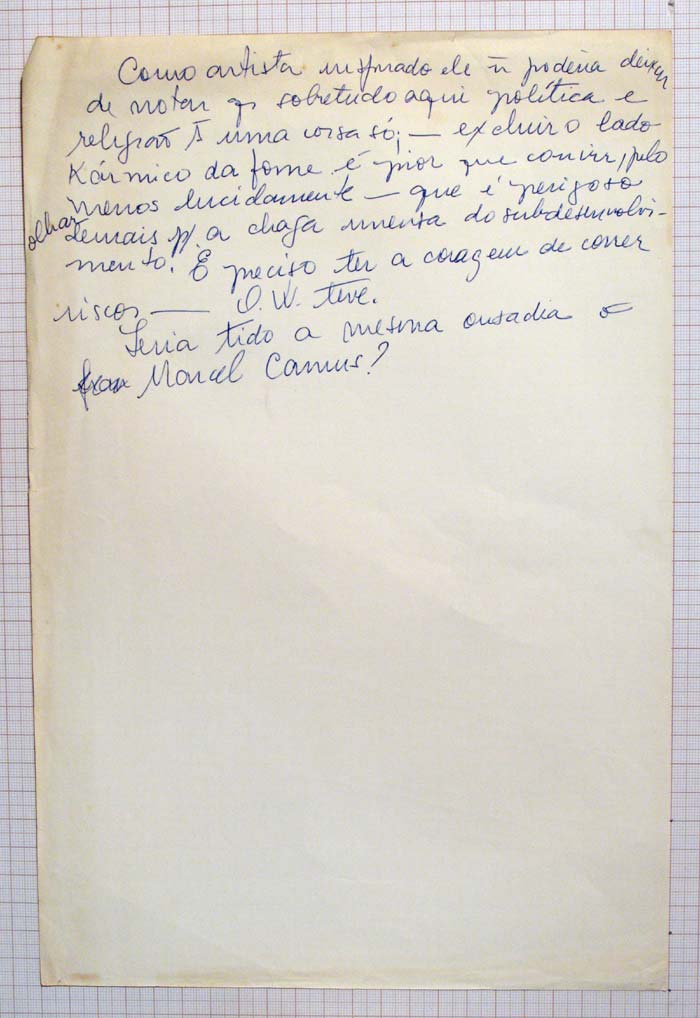 Como artista inspirado ele ñ poderia deixar
de notar q sobretudo aqui política e
religião é uma coisa só; — excluir o lado
Kármico da fome é pior que convir, pelo
menos lucidamente — que é perigoso
olhar demais p/ a chaga imensa do subdesenvolvi-
mento. É preciso ter a coragem de correr
riscos — O. W. teve.
Teria tido a mesma ousadia o
Marcel Camus?